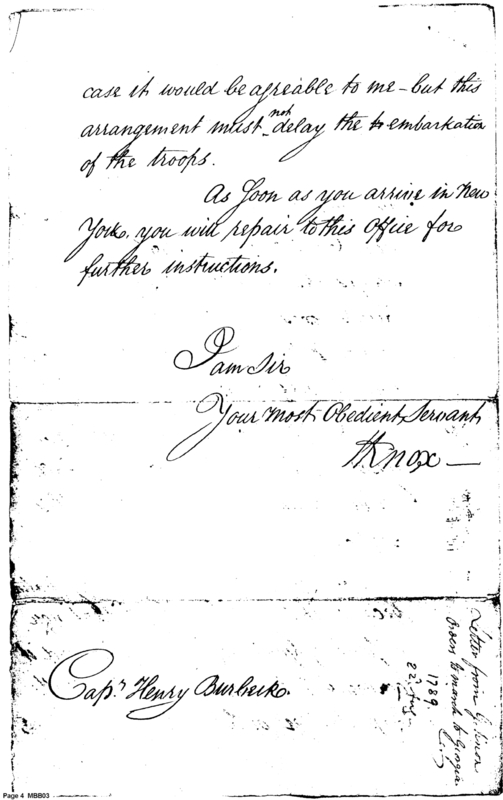 case it would be agreable to me – but this
not
arrangement must delay the embarkation
of the troops.
As Soon as you arrive in New
York, you will repair to this Office for
further instructions.
I am Sir
Your most Obedient Servant
HKnox —
Capt. Henry Burbeck.
Letter from G. Knox
Orders to march to Georgia
1789
22. Aug
Page 4 MBB03